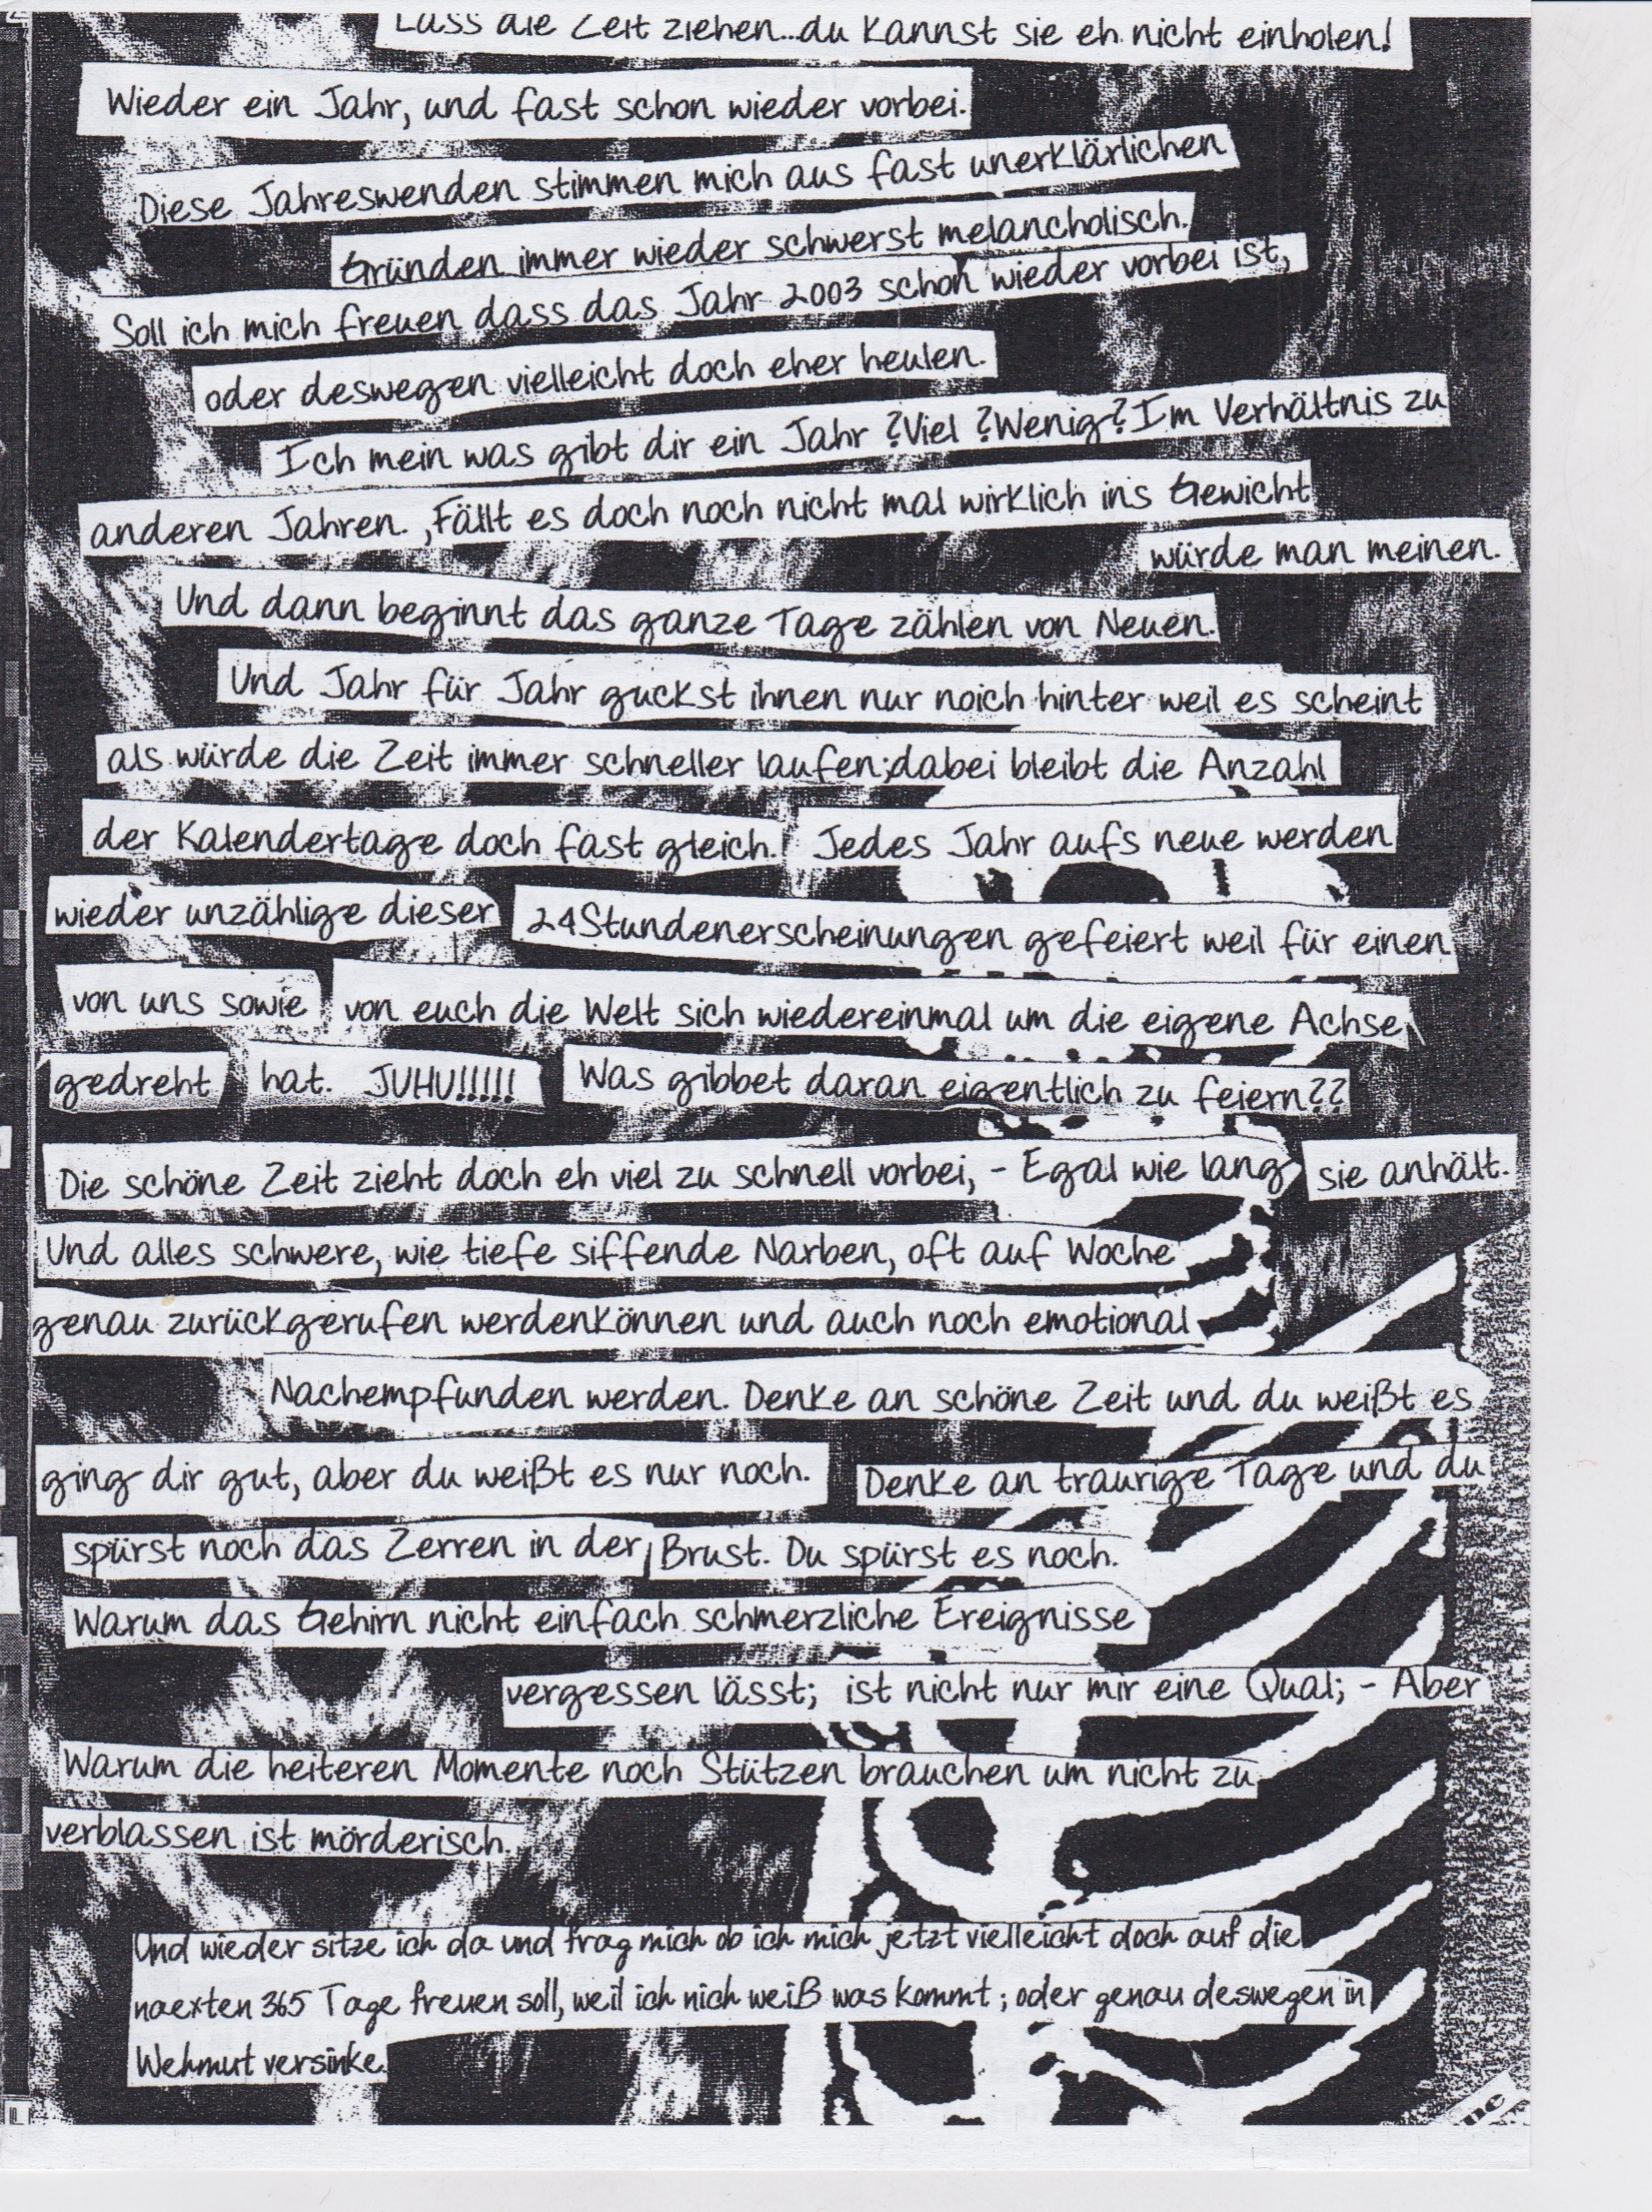 Lass die Zeit ziehen...du kannst sie eh nicht einholen!
Wieder ein Jahr, und fast schon wieder vorbei.
Diese Jahreswenden stimmen mich aus fast unerklärlichen
Gründen immer wieder schwerst melancholisch.
Soll ich mich freuen dass das Jahr 2003 schon wieder vorbei ist,
oder deswegen vielleicht doch eher heulen.
Ich mein was gibt dir ein Jahr ?Viel ?Wenig?Im Verhältnis zu
anderen Jahren. ,Fällt es doch noch nicht mal wirklich in's Gewicht
würde man meinen.
Und dann beginnt das ganze Tage zählen von Neuen.
Und Jahr für Jahr guckst ihnen nur noich hinter weil es scheint
als würde die Zeit immer schneller laufen;dabei bleibt die Anzahl
der Kalendertage doch fast gleich.! Jedes Jahr aufs neue werden
wieder unzählige dieser 24Stundenerscheinungen gefeiert weil für einen
von uns sowie von euch die Welt sich wiedereinmal um die eigene Achse
gedreht hat. JUHU!!!!! Was gibbet daran eigentlich zu feiern??
Die schöne Zeit zieht doch eh viel zu schnell vorbei, - Egal wie lang sie anhält.
Und alles schwere, wie tiefe siffende Narben, oft auf Woche
genau zurückgerufen werdenkönnen und auch noch emotional
Nachempfunden werden. Denke an schöne Zeit und du weißt es
ging dir gut, aber du weißt es nur noch. Denke an traurige Tage und du
spürst noch das Zerren in der Brust. Du spürst es noch.
Warum das Gehirn nicht einfach schmerzliche Ereignisse
vergessen lässt; ist nicht nur mir eine Qual; - Aber
Warum die heiteren Momente noch Stützen brauchen um nicht zu
verblassen ist mörderisch.
Und wieder sitze ich da und frag mich ob ich mich jetzt vielleicht doch auf die
naexten 365 Tage freuen soll, weil ich nich weiß was kommt ; oder genau deswegen in
Wehmut versinke.